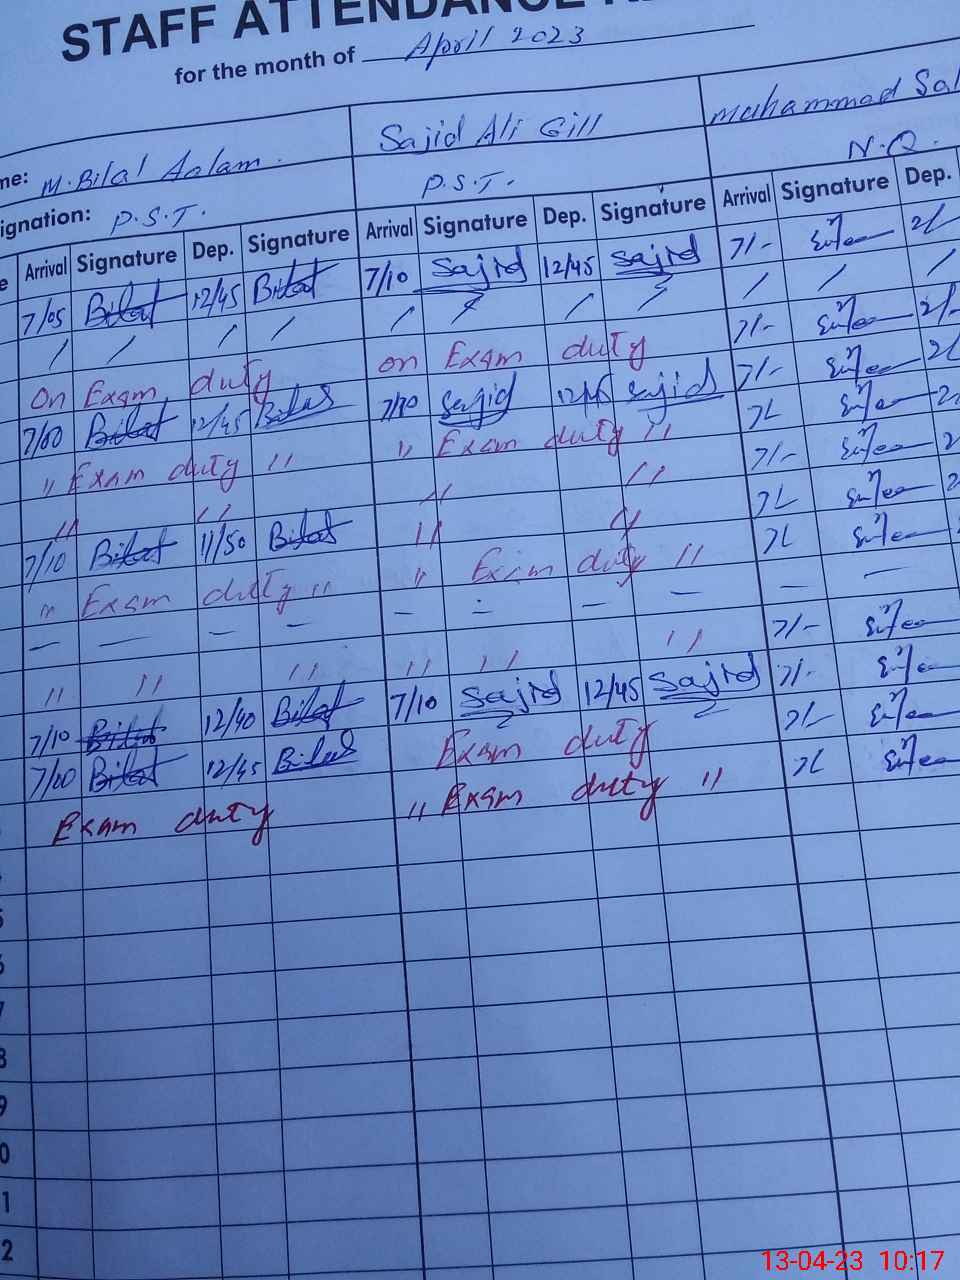 STAFF ATTENDANCE
for the month of April 2023
me: M. Bilal Aalam. Sajid Ali Gill Muhammad Sal
signation: P.S.T. P.S.T. N.Q.
e Arrival Signature Dep. Signature Arrival Signature Dep. Signature Arrival Signature Dep.
7/05 Bilal 12/45 Bilal 7/10 Sajid 12/45 Sajid 7/-
/ / / / / / / / / / /
on Exam duty on Exam duty 7/-
7/00 Bilal 12/45 Bilal 7/10 Sajid Sajid 7/-
" Exam duty " " Exam duty "
" " " " 7/-
7/10 Bilal 11/50 Bilal " "
" Exam duty " " Exam duty "
— — — — — — — — — —
" " " " " " 7/-
7/10 Bilal 12/40 Bilal 7/10 Sajid 12/45 Sajid 7/-
7/00 Bilal 12/45 Bilal Exam duty
Exam duty " Exam duty "
5
6
7
8
9
0
1
2
13-04-23 10:17